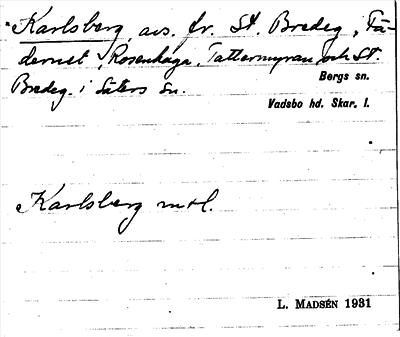 Karlsberg, avs. fr. St. Bredeg, Fä-
dernet, Rosenhaga, Tattarmyran och St.
Bredeg. i Säters sn.
Bergs sn.
Vadsbo hd. Skar. l.
Karlsberg
L. MADSÉN 1931